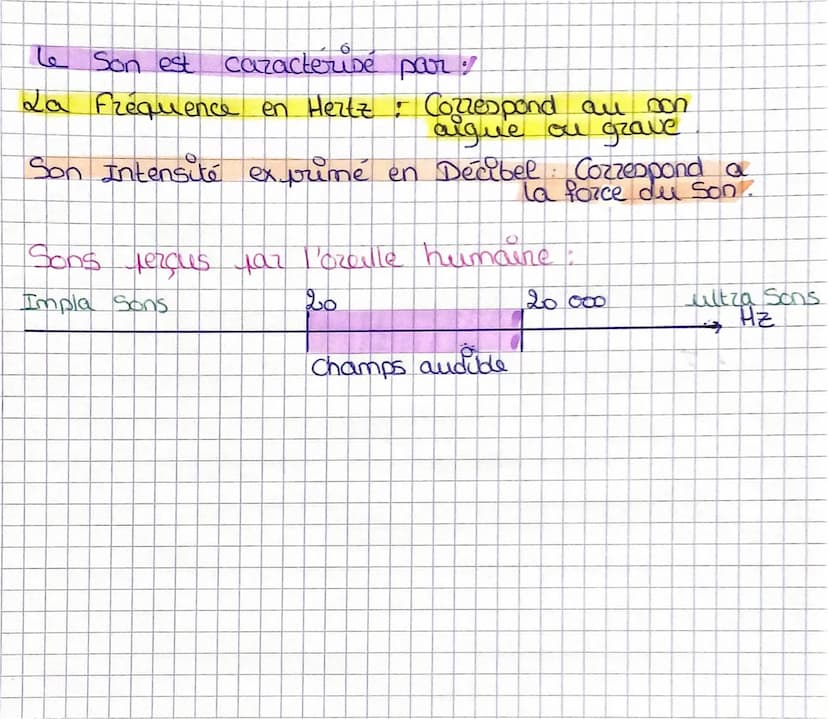 Le Son est caractérisé par :
La Fréquence en Hertz : Correspond au son
aigue ou grave
Son Intensité exprimé en Décibel : Correspond a
la force du Son.
Sons perçus par l'oreille humaine :
Impla Sons 20 20 000 ultra Sons
Hz
Champs audible